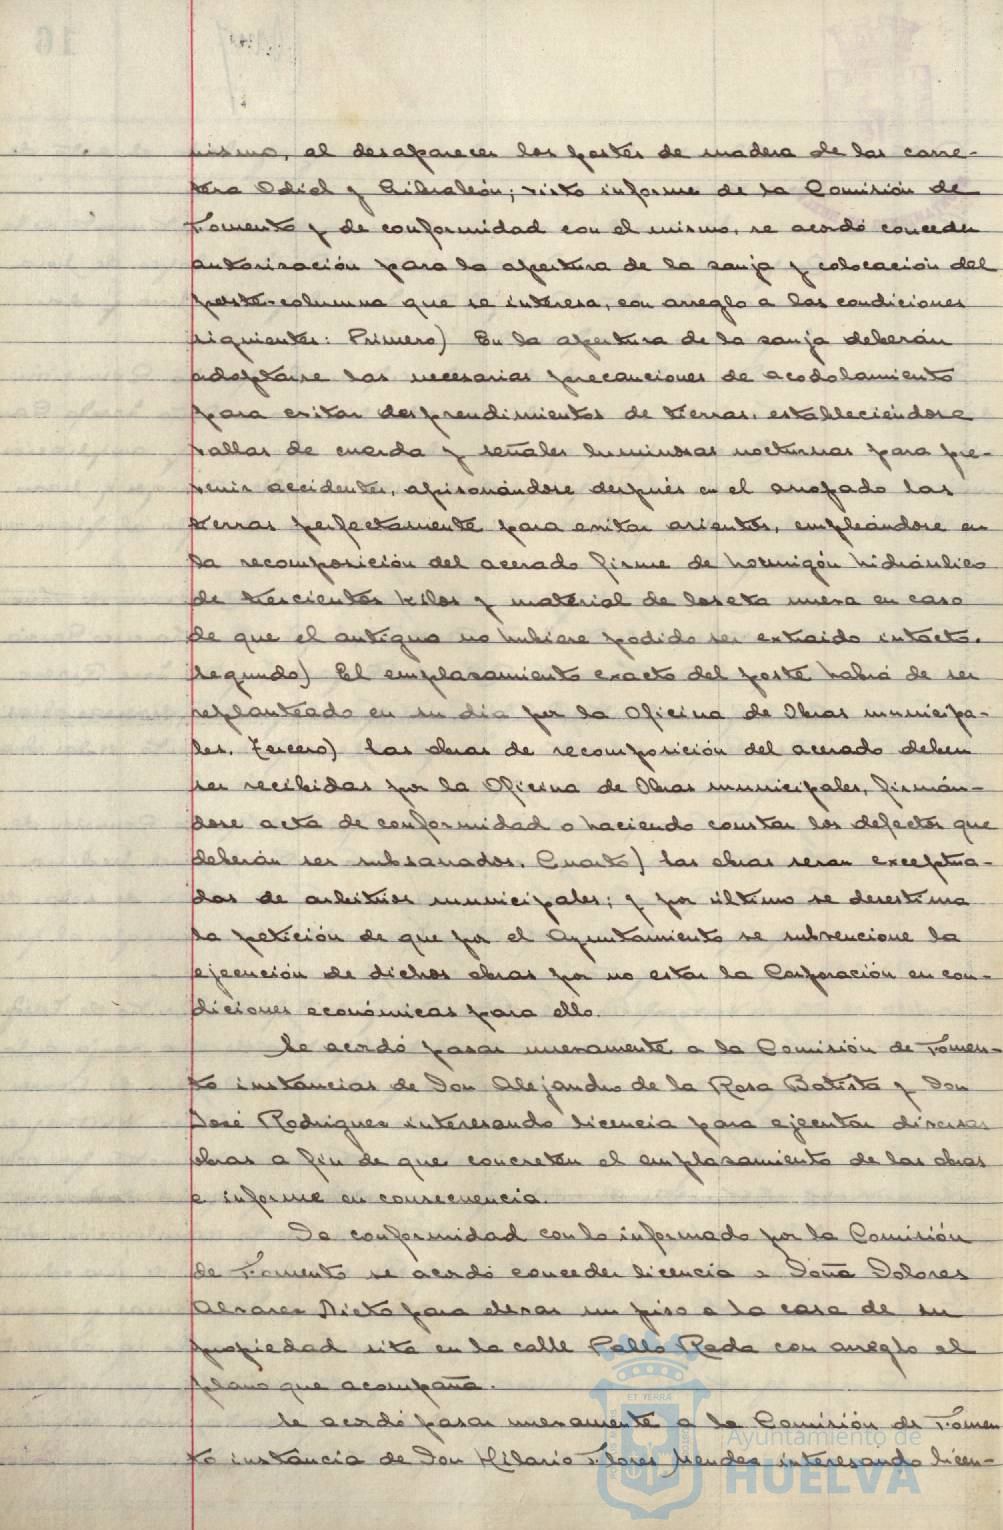 mismo, al desaparecer los postes de madera de las carre-
tera Odiel y Gibraleón; visto informe de la Comisión de
Fomento y de conformidad con el mismo, se acordó conceder
autorización para la apertura de la zanja y colocación del
poste-columna que se interesa, con arreglo a las condiciones
siguientes: Primero) En la apertura de la zanja deberán
adoptarse las necesarias precauciones de acodalamiento
para evitar desprendimientos de tierras, estableciéndose
vallas de cuerda y señales luminosas nocturnas para pre-
venir accidentes, apisonándose después en el arropado las
tierras perfectamente para evitar asientos, empleándose en
la recomposición del acerado firme de hormigón hidráulico
de trescientos kilos y material de loseta nueva en caso
de que el antiguo no hubiere podido ser extraido intacto.
Segundo) El emplazamiento exacto del poste habrá de ser
replanteado en su día por la Oficina de Obras municipa-
les. Tercero) Las obras de recomposición del acerado deben
ser recibidas por la Oficina de Obras municipales, firmán-
dose acta de conformidad o haciendo constar los defectos que
deberán ser subsanados. Cuarto) Las obras seran exceptua-
das de arbitrios municipales; y por último se desestima
la petición de que por el Ayuntamiento se subvencione la
ejecución de dichas obras por no estar la Corporación en con-
diciones económicas para ello.
Se acordó pasar nuevamente a la Comisión de Fomen-
to instancias de Don Alejandro de la Rosa Batista y Don
José Rodriguez interesando licencia para ejecutar diversas
obras a fin de que concreten el emplazamiento de las obras
e informe en consecuencia.
De conformidad con lo informado por la Comisión
de Fomento se acordó conceder licencia a Doña Dolores
Alvarez Nieto para elevar un piso a la casa de su
propiedad sita en la calle Pablo Rada con arreglo al
plano que acompaña.
Se acordó pasar nuevamente a la Comisión de Fomen
to instancia de Don Hilario Flores Mendez interesando licen-
ET TERRÆ
Ayuntamiento de
HUELVA